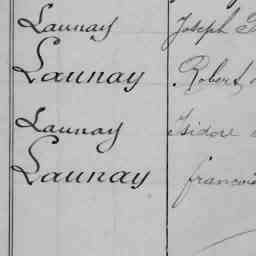 Launay Joseph
Launay Robert
Launay Isidore
Launay